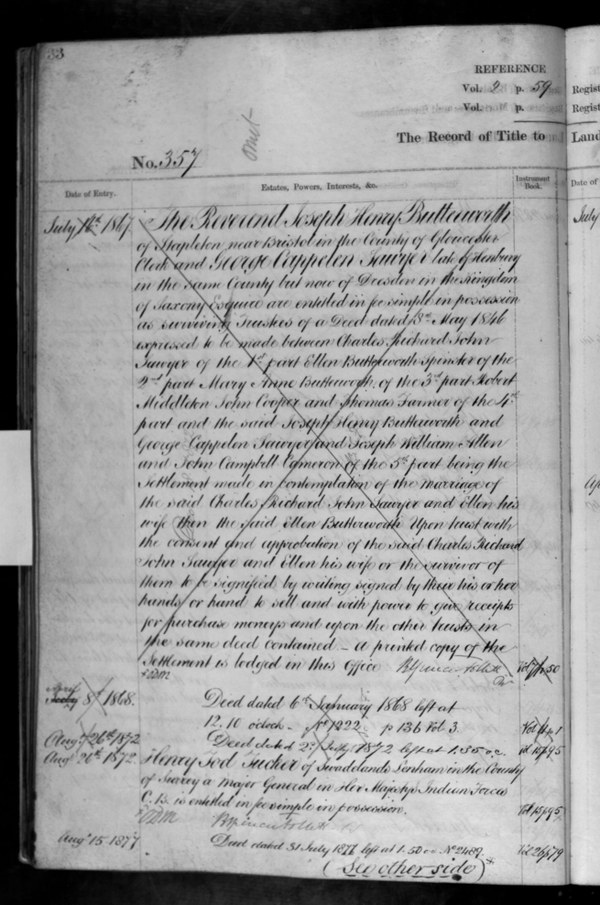 33
REFERENCE
Vol. 2 p. 59
Vol. p.
The Record of Title to
Land
Regist
Regist
omit
No. 357
Date of Entry.
Estates, Powers, Interests, &c.
Instrument Book.
Date of
July 1867
The Reverend Joseph Henry Butterworth
July
of Stapleton near Bristol in the County of Gloucester
Clerk and George Cappelen Sawyer late of Henbury
in the same County but now of Dresden in the Kingdom
of Saxony Esquire are entitled in fee simple in possession
as surviving Trustees of a Deed dated 8th May 1846
expressed to be made between Charles Richard John
Sawyer of the 1st part Ellen Butterworth Spinster of the
2nd part Mary Anne Butterworth of the 3rd part Robert
Middleton John Cooper and Thomas Farmer of the 4th
part and the said Joseph Henry Butterworth and
George Cappelen Sawyer and Joseph William Allen
and John Campbell Cameron of the 5th part being the
Settlement made in contemplation of the marriage of
the said Charles Richard John Sawyer and Ellen his
wife then the said Ellen Butterworth Upon trust with
the consent and approbation of the said Charles Richard
John Sawyer and Ellen his wife or the survivor of
them to be signified by writing signed by their his or her
hands or hand to sell and with power to give receipts
for purchase moneys and upon the other trusts in
the same deed contained – a printed copy of the
Settlement is lodged in this Office
April
8th 1868.
Deed dated 6th January 1868 left at
12.10 oclock – No 1322 p 136 Vol 3.
Augt 26th 1872
Deed dated 2nd July 1872 left at 1.35 oc.
Vol 15 p 95
Augt 26th 1872.
Henry Tod Tucker of Swadelands Lenham in the County
of Surrey a Major General in Her Majestys Indian Forces
C.B. is entitled in fee simple in possession.
Vol 15 p 95
Augt 15 1877
Deed dated 31 July 1877 left at 1.50 oc No 2489
Vol 26 p 579
(See other side)